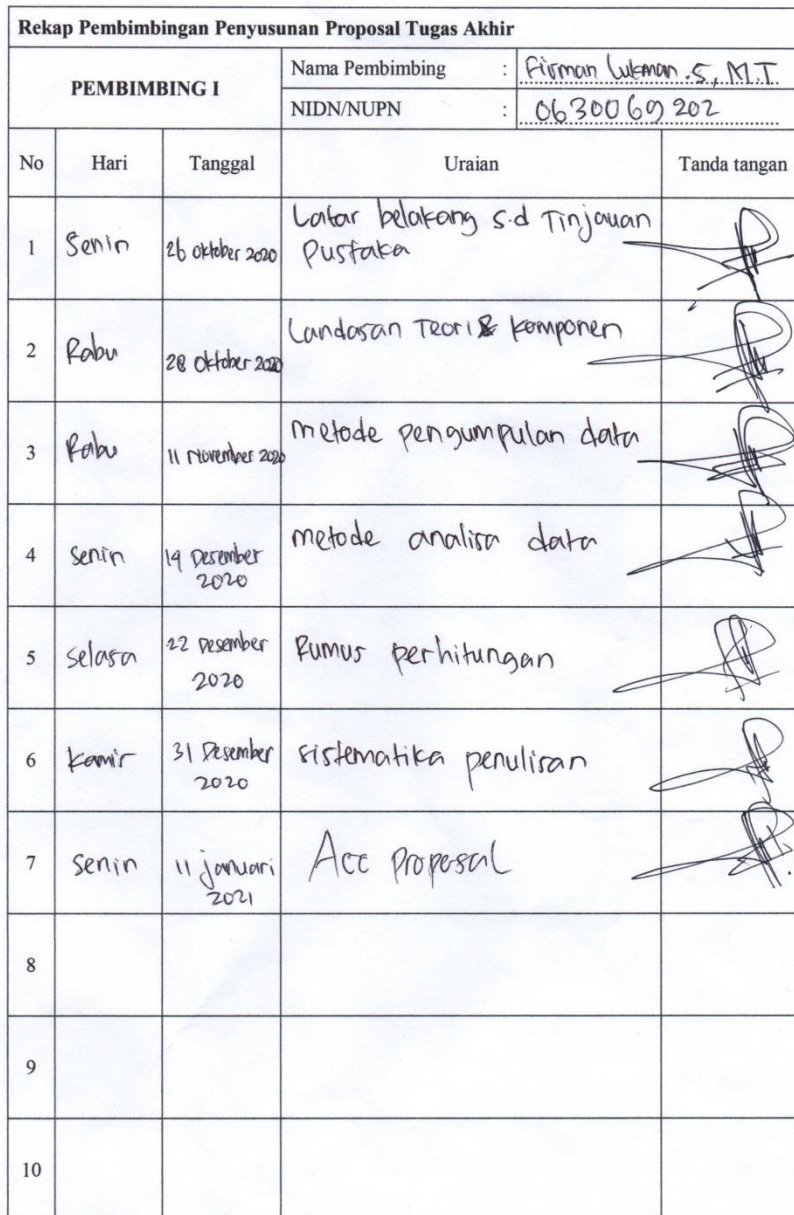 Rekap Pembimbingan Penyusunan Proposal Tugas Akhir
PEMBIMBING I
Nama Pembimbing : Firman Lukman .S, M.T
NIDN/NUPN : 0630069202
No Hari Tanggal Uraian Tanda tangan
1 Senin 26 oktober 2020 Latar belakang s.d Tinjauan
Pustaka
2 Rabu 28 Oktober 2020 Landasan Teori & komponen
3 Rabu 11 November 2020 metode pengumpulan data
4 Senin 14 Desember
2020
metode analisa data
5 Selasa 22 Desember
2020
Rumus perhitungan
6 Kamis 31 Desember
2020
sistematika penulisan
7 Senin 11 januari
2021
Acc Proposal
8
9
10